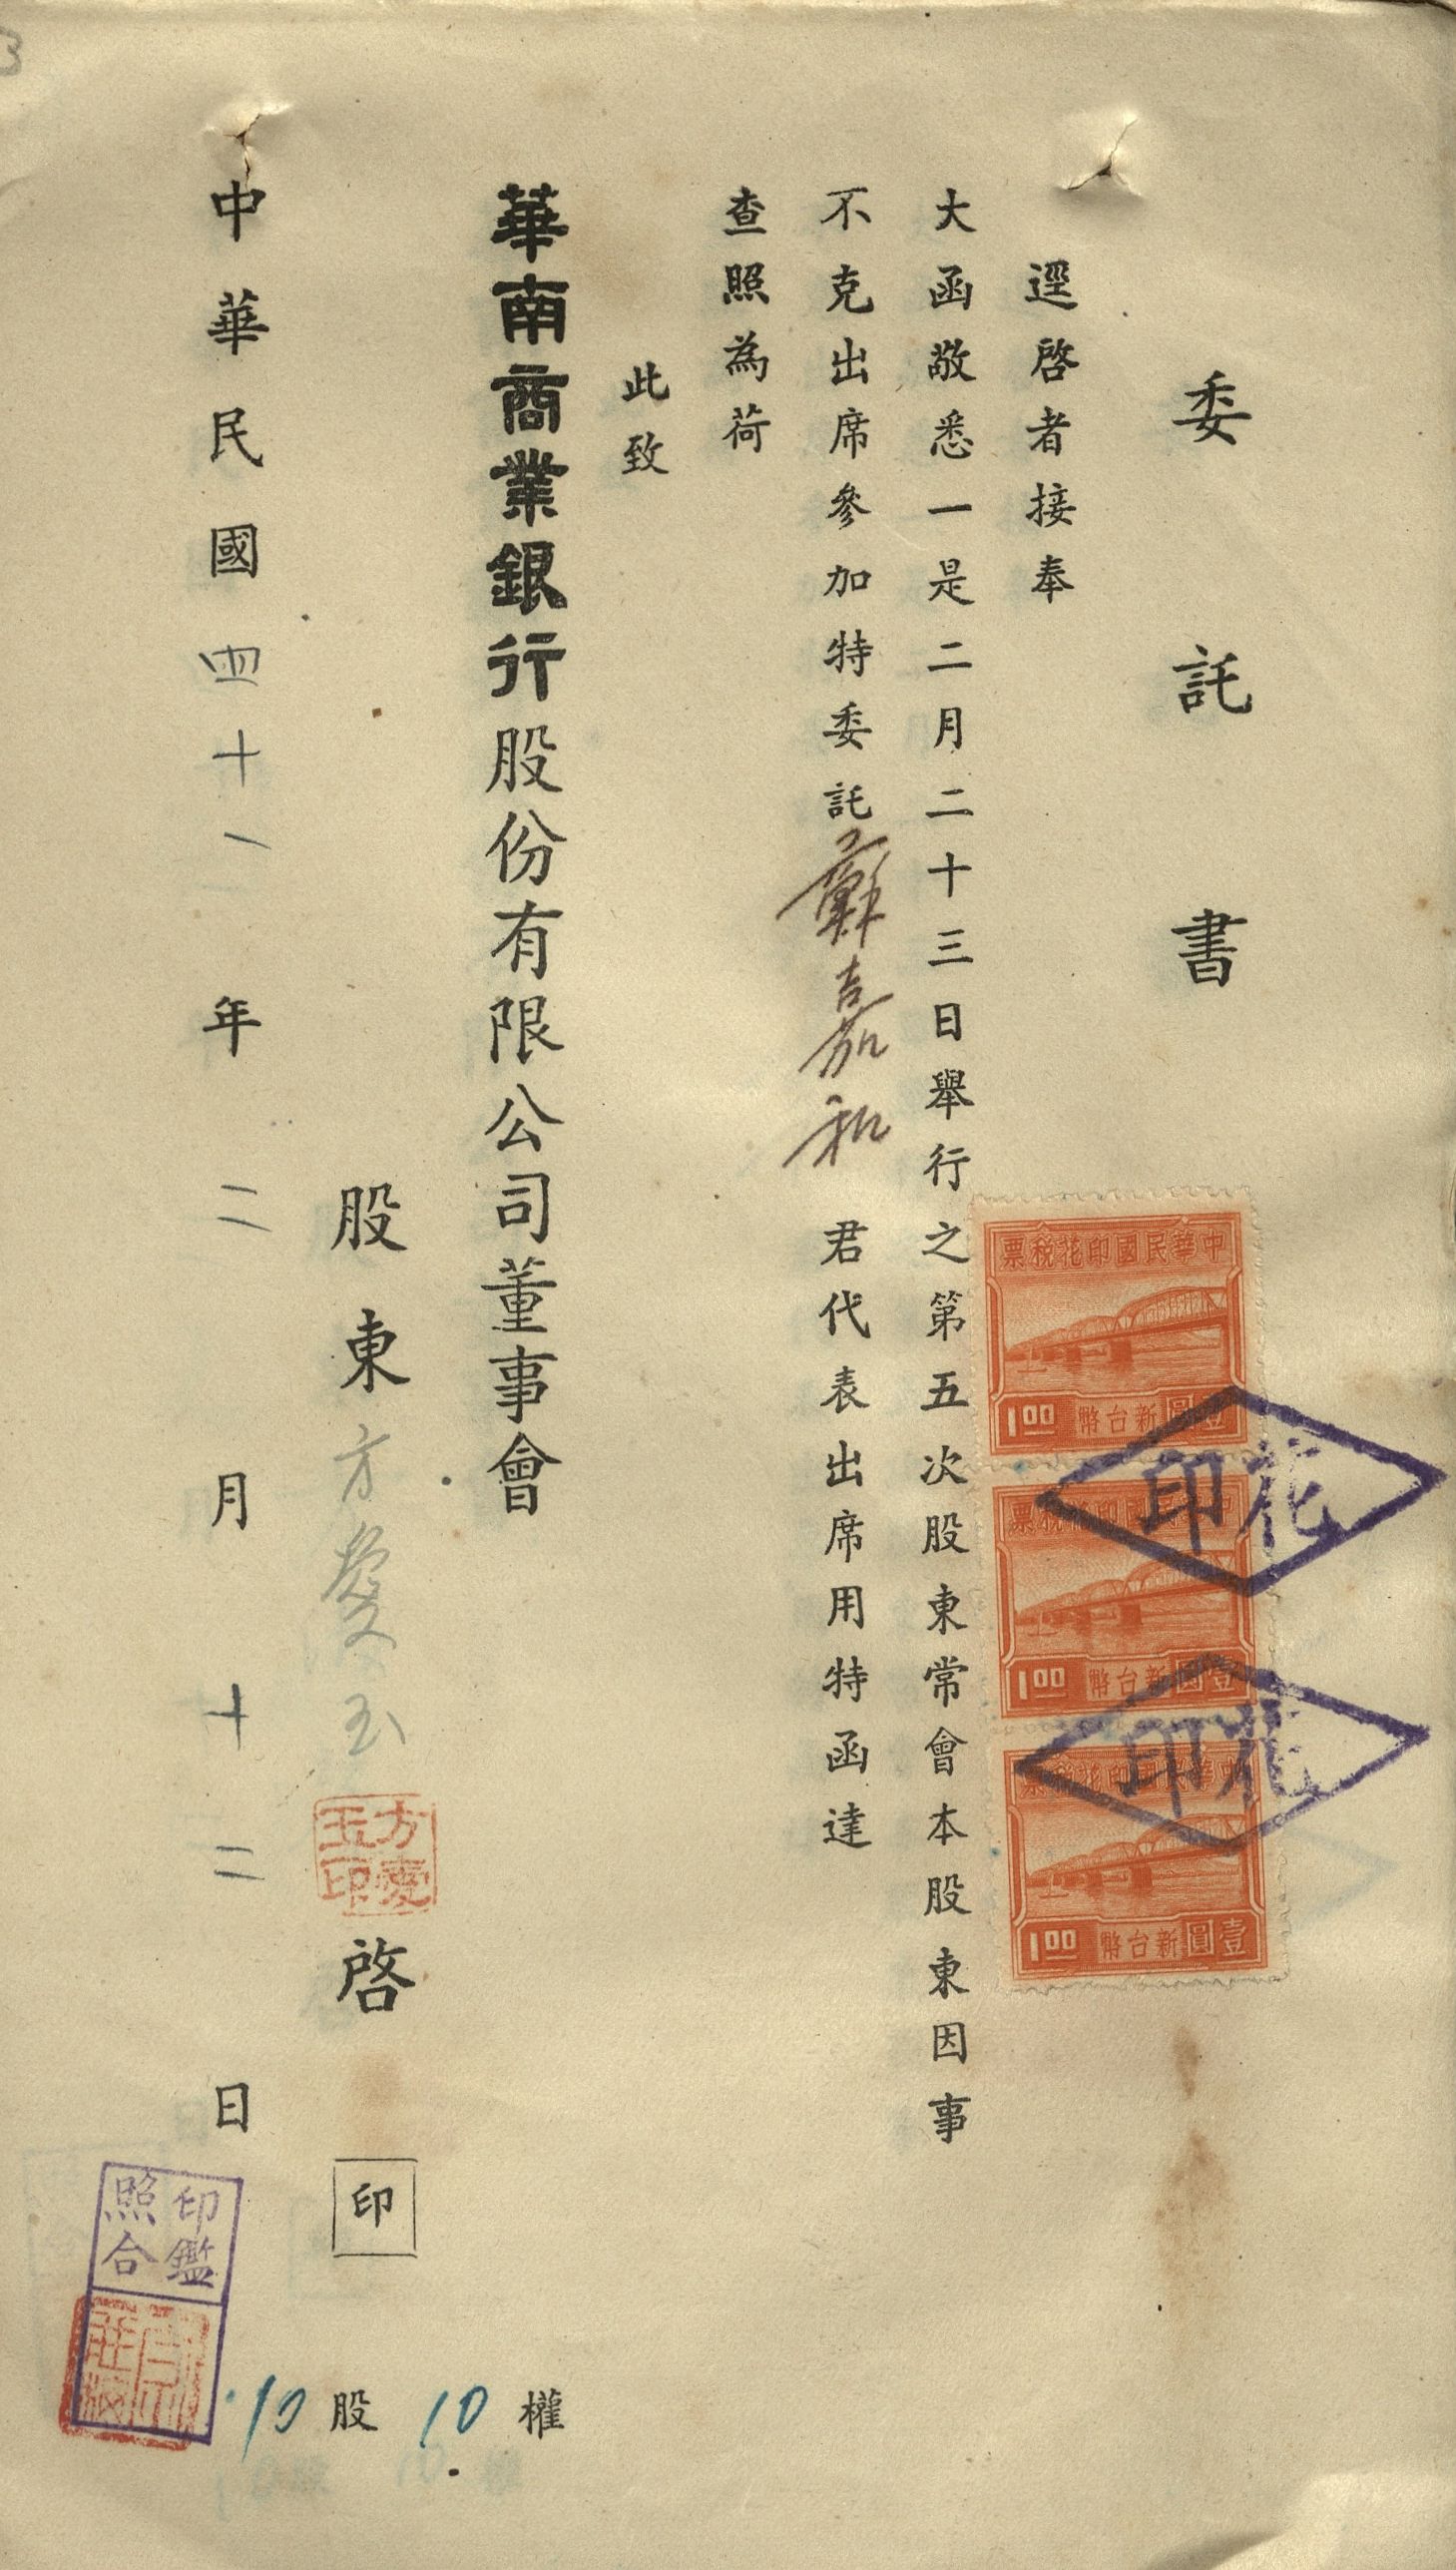 委託書
逕啓者接奉
大函敬悉一是二月二十三日舉行之第五次股東常會本股東因事
不克出席參加特委託蘇嘉和君代表出席用特函達
查照為荷
此致
華南商業銀行股份有限公司董事會
股東方愛玉啓
方愛
玉印
印
中華民國四十一年二月十二日
10股10權
印鑑
照合
票稅花印國民華中
1.00 幣台新圓壹
票稅花印國民華中
1.00 幣台新圓壹
票稅花印國民華中
1.00 幣台新圓壹
印花
印花